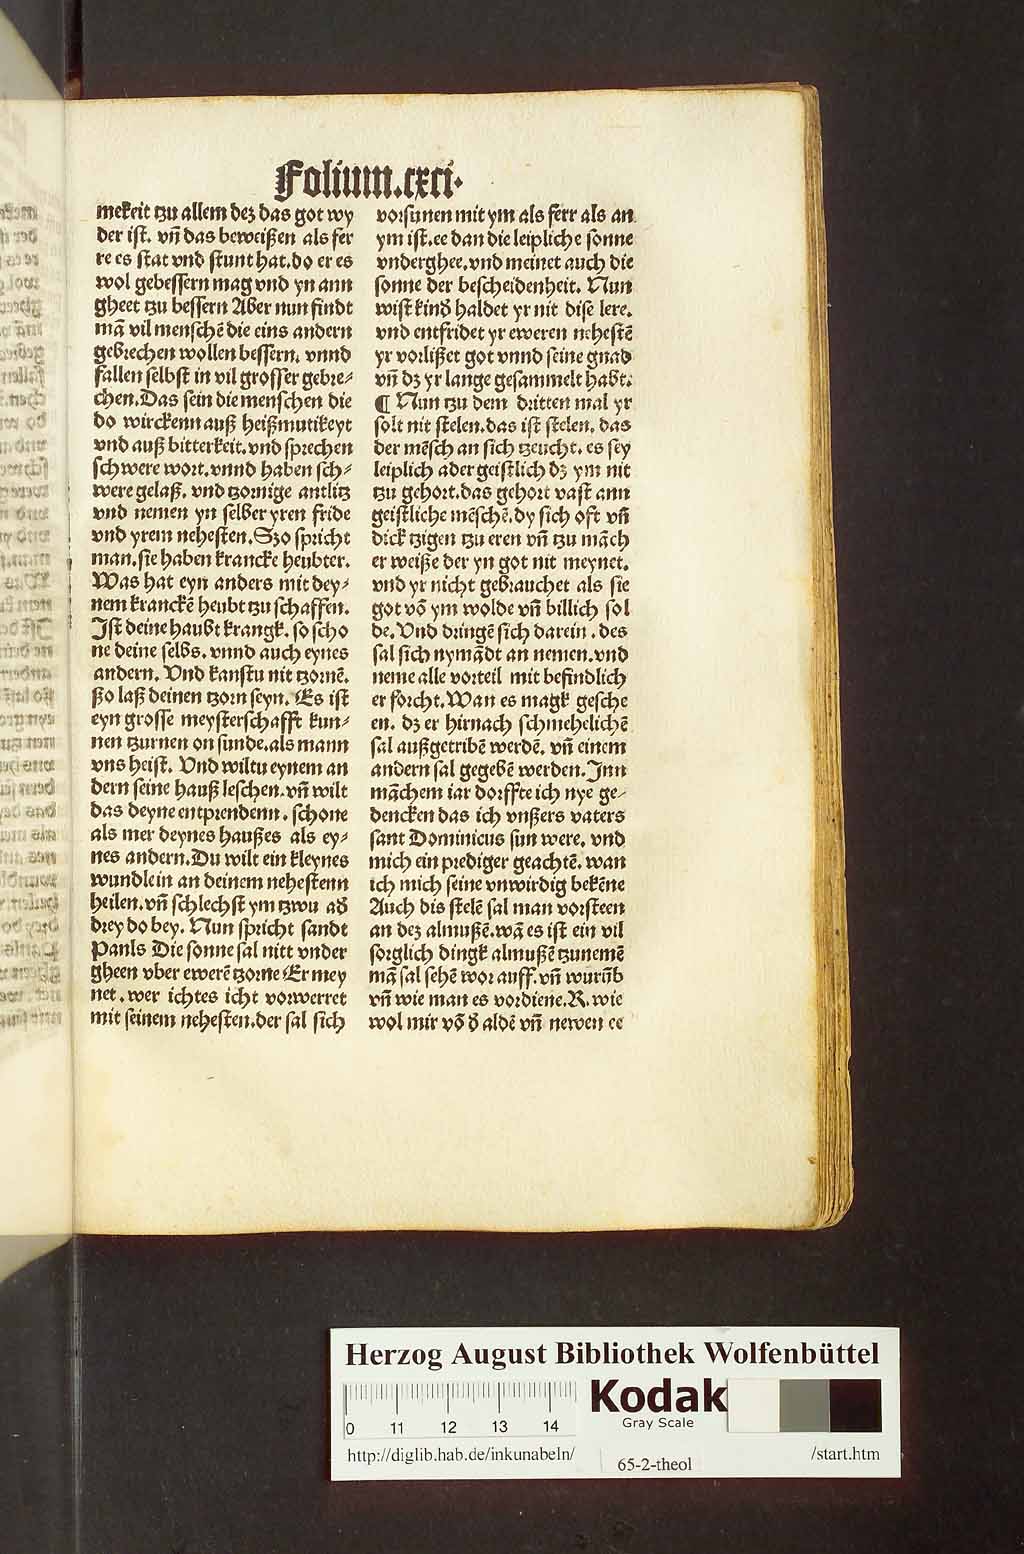 Folium.cxci.
mekeit tzu allem dez das got wy
der ist. vñ das beweißen als fer
re es stat vnd stunt hat.do er es
wol gebessern mag vnd yn ann
gheet tzu bessern Aber nun findt
mā vil menschē die eins andern
gebrechen wollen bessern. vnnd
fallen selbst in vil grosser gebre⸗
chen.Das sein die menschen die
do wirckenn auß heißmutikeyt
vnd auß bitterkeit.vnd sprechen
schwere wort.vnnd haben sch⸗
were gelaß. vnd tzornige antlitz
vnd nemen yn selber yren fride
vnd yrem nehesten.Szo spricht
man.sie haben krancke heubter.
Was hat eyn anders mit dey⸗
nem kranckē heubt tzu schaffen.
Ist deine haubt krangk. so scho
ne deine selbs. vnnd auch eynes
andern. Vnd kanstu nit tzornē.
ßo laß deinen tzorn seyn. Es ist
eyn grosse meysterschafft kun⸗
nen tzurnen on sunde.als mann
vns heist. Vnd wiltu eynem an
dern seine hauß leschen.vñ wilt
das deyne entprendenn. schone
als mer deynes haußes als ey⸗
nes andern.Du wilt ein kleynes
wundlein an deinem nehestenn
heilen.vñ schlechst ym tzwu ad̄
drey do bey. Nun spricht sandt
Panls Die sonne sal nitt vnder
gheen vber ewerē tzorne Er mey
net. wer ichtes icht vorwerret
mit seinem nehesten.der sal sich
vorsunen mit ym als ferr als an
ym ist.ee dan die leipliche sonne
vnderghee.vnd meinet auch die
sonne der bescheidenheit. Nun
wist kind̄ haldet yr nit dise lere.
vnd entfridet yr eweren nehestē
yr vorlißet got vnnd seine gnad
vñ dz yr lange gesammelt habt.
¶ Nun tzu dem dritten mal yr
solt nit stelen.das ist stelen. das
der mēsch an sich tzeucht. es sey
leiplich ader geistlich dz ym nit
tzu gehort.das gehort vast ann
geistliche mēschē.dy sich oft vñ
dick tzigen tzu eren vñ tzu māch
er weiße der yn got nit meynet.
vnd yr nicht gebrauchet als sie
got vō ym wolde vñ billich sol
de.Vnd dringē sich darein. des
sal sich nymādt an nemen.vnd
neme alle vorteil mit befindlich
er forcht.Wan es magk gesche
en. dz er hirnach schmehelichē
sal außgetribē werdē. vñ einem
andern sal gegebē werden.Inn
māchem iar dorffte ich nye ge⸗
dencken das ich vnßers vaters
sant Dominicus sun were. vnd
mich ein prediger geachtē. wan
ich mich seine vnwirdig bekēne
Auch dis stelē sal man vorsteen
an dez almußē.wā es ist ein vil
sorglich dingk almußē tzunemē
mā sal sehē wor auff.vñ wurūb
vñ wie man es vordiene.R. wie
wol mir vō d̄ aldē vñ newen ee
Herzog August Bibliothek Wolfenbüttel
0 11 12 13 14
Kodak
Gray Scale
http://diglib.hab.de/inkunabeln/ 65-2-theol /start.htm